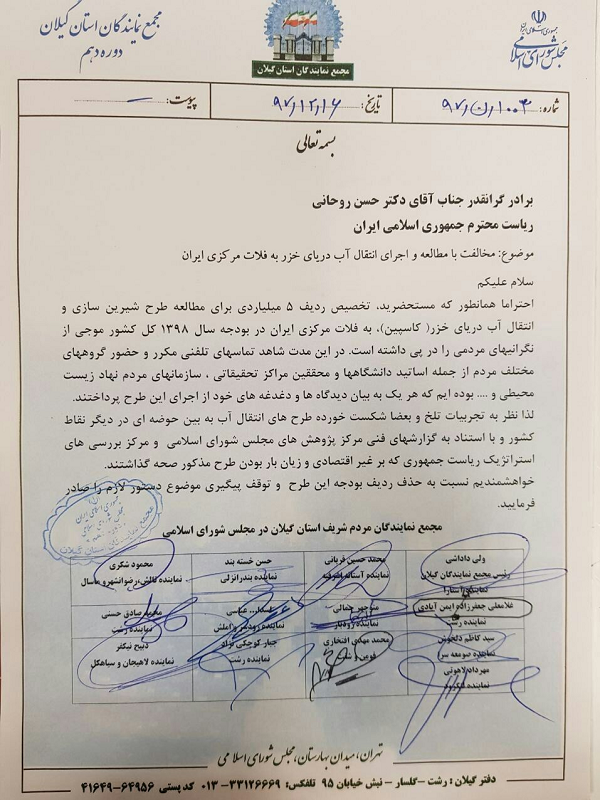 مجمع نمایندگان استان گیلان
دوره دهم
جمهوری اسلامی ایران
مجلس شورای اسلامی
مجمع نمایندگان استان گیلان
شماره: ۹۷/ن/۱۰۰۴
تاریخ: ۹۷/۱۲/۱۶
پیوست:
بسمه تعالی
برادر گرانقدر جناب آقای دکتر حسن روحانی
ریاست محترم جمهوری اسلامی ایران
موضوع: مخالفت با مطالعه و اجرای انتقال آب دریای خزر به فلات مرکزی ایران
سلام علیکم
احتراما همانطور که مستحضرید، تخصیص ردیف ۵ میلیاردی برای مطالعه طرح شیرین سازی و
انتقال آب دریای خزر( کاسپین)، به فلات مرکزی ایران در بودجه سال ۱۳۹۸ کل کشور موجی از
نگرانیهای مردمی را در پی داشته است. در این مدت شاهد تماسهای تلفنی مکرر و حضور گروههای
مختلف مردم از جمله اساتید دانشگاهها و محققین مراکز تحقیقاتی ، سازمانهای مردم نهاد زیست
محیطی و .... بوده ایم که هر یک به بیان دیدگاه ها و دغدغه های خود از اجرای این طرح پرداختند.
لذا نظر به تجربیات تلخ و بعضا شکست خورده طرح های انتقال آب به بین حوضه ای در دیگر نقاط
کشور و با استناد به گزارشهای فنی مرکز پژوهش های مجلس شورای اسلامی و مرکز بررسی های
استراتژیک ریاست جمهوری که بر غیر اقتصادی و زیان بار بودن طرح مذکور صحه گذاشتند.
خواهشمندیم نسبت به حذف ردیف بودجه این طرح و توقف پیگیری موضوع دستور لازم را صادر
فرمایید.
مجمع نمایندگان مردم شریف استان گیلان در مجلس شورای اسلامی
ولی داداشی
رئیس مجمع نمایندگان گیلان
نماینده آستارا
محمد حسین قربانی
نماینده آستانه اشرفیه
حسن خسته بند
نماینده بندرانزلی
محمود شکری
نماینده تالش،رضوانشهرو ماسال
غلامعلی جعفرزاده ایمن آبادی
نماینده رشت
منوچهر جمالی
نماینده رودبار
اسداله عباسی
نماینده رودسر و املش
محمد صادق حسنی
نماینده رشت
سید کاظم دلخوش
نماینده صومعه سرا
محمد مهدی افتخاری
فومن و شفت
جبار کوچکی نژاد
نماینده رشت
ذبیح نیکفر
نماینده لاهیجان و سیاهکل
مهرداد لاهوتی
نماینده لنگرود
تهران، میدان بهارستان، مجلس شورای اسلامی
دفتر گیلان: رشت - گلسار - نبش خیابان ۹۵ تلفکس: ۳۳۱۲۶۶۶۹-۰۱۳ کد پستی ۶۴۹۵۶-۴۱۶۴۹